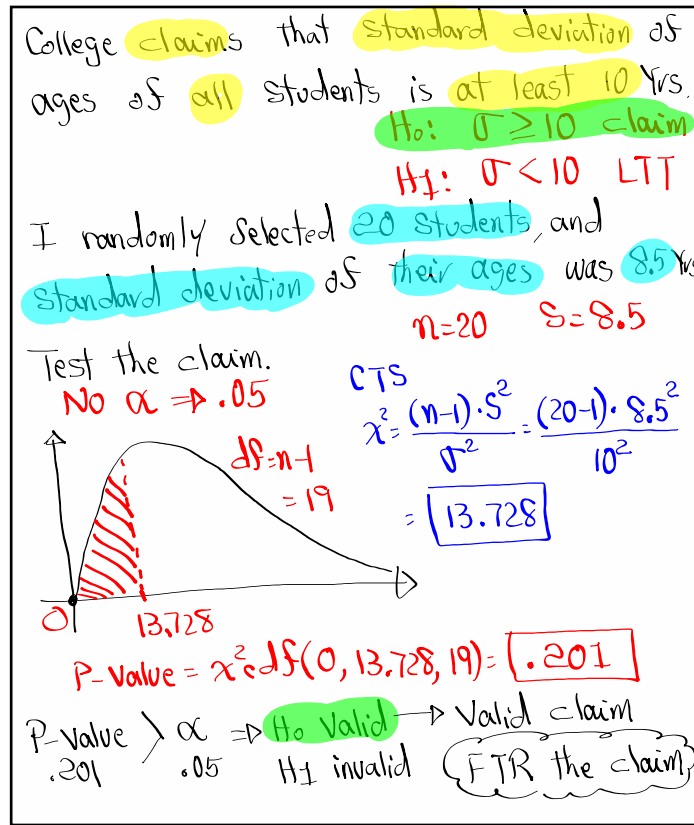 College claims that standard deviation of
ages of all students is at least 10 Yrs.
H₀: σ ≥ 10 claim
H1: σ < 10 LTT
I randomly selected 20 students, and
standard deviation of their ages was 8.5 Yrs
n=20 S=8.5
Test the claim.
No α ⇒ .05
CTS
χ² = (n-1)·S² / σ² = (20-1)·8.5² / 10²
= 13.728
df=n-1
= 19
0 13.728
P-Value = χ²cdf(0, 13.728, 19) = .201
P-Value > α ⇒ H₀ Valid → Valid claim
.201 .05 H1 invalid FTR the claim